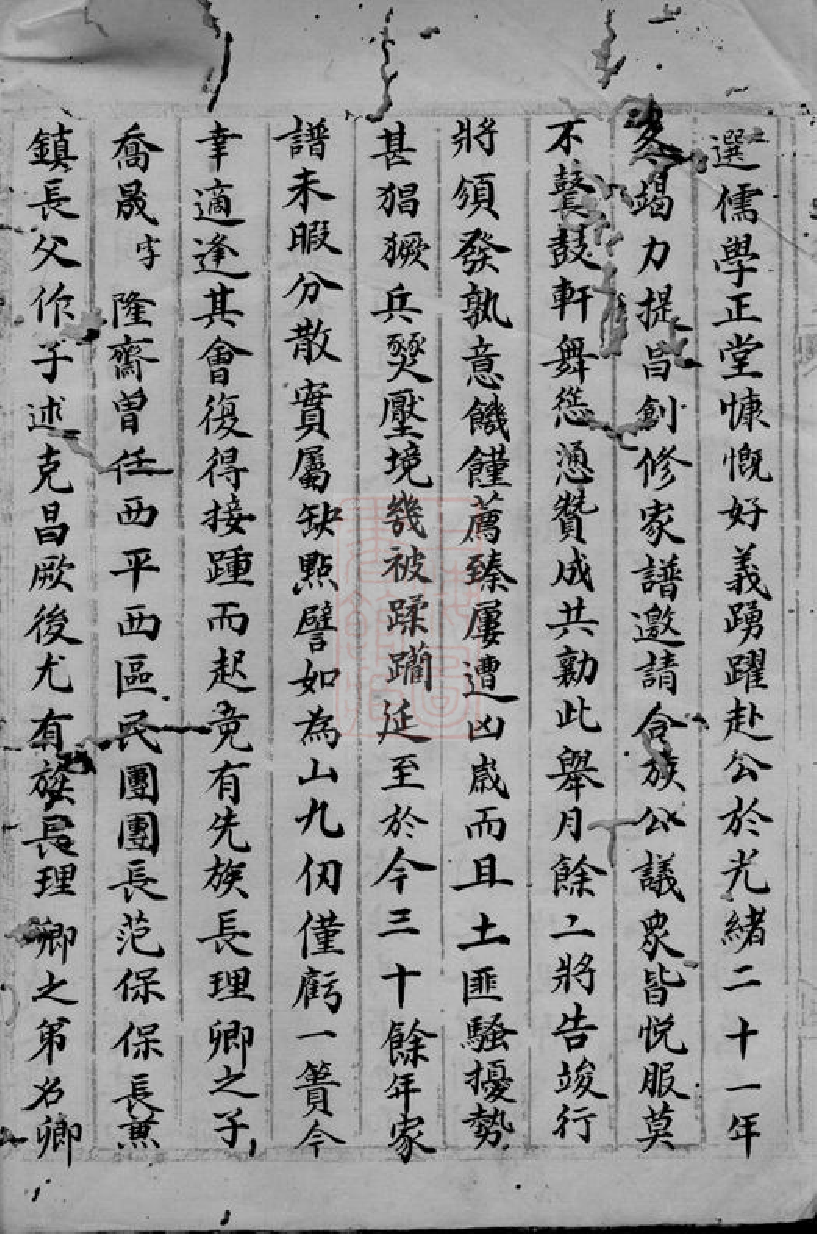 選儒學正堂慷慨好義踴躍赴公於光緒二十一年
冬竭力提昌創修家譜邀請合族公議眾皆悅服莫
不鼚鼓軒舞慫慂贊成共勷此舉月餘工將告竣行
將頒發孰意饑饉薦臻屢遭凶歲而且土匪騷擾勢
甚猖獗兵燹壓境幾被蹂躪延至於今三十餘年家
譜未暇分散實屬缺點譬如為山九仞僅虧一簣今
幸適逢其會復得接踵而起竟有先族長理卿之子
喬晟字隆齋曾任西平西區民團團長范保保長兼
鎮長父作子述克昌厥後尤有族長理卿之第名卿